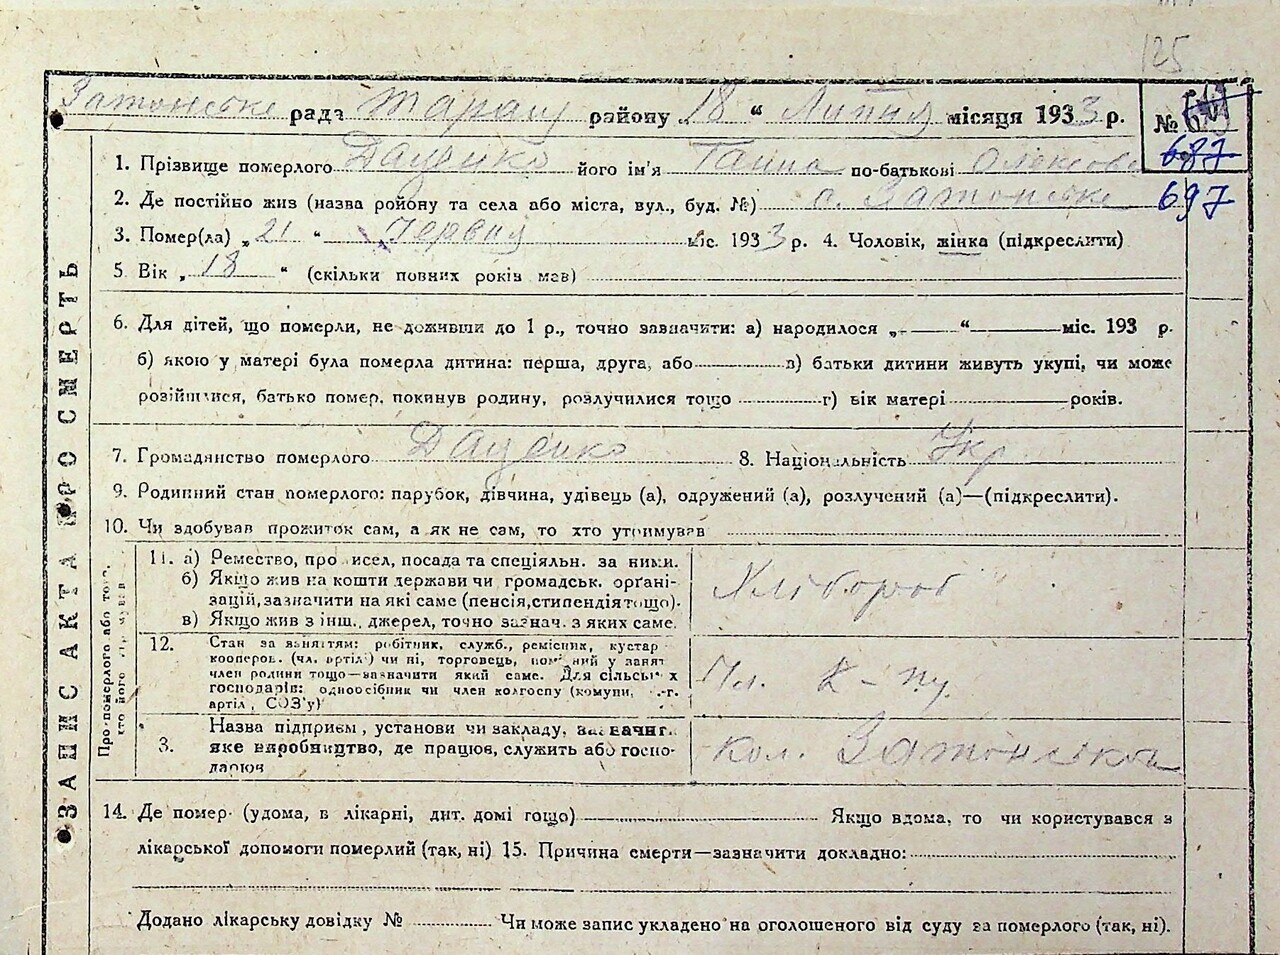 125
Затонське рада Таращ району „18“ Липня місяця 1933 р. №
687
1. Прізвище померлого Даценко його ім'я Ганна по-батькові Олексієв
697
2. Де постійно жив (назва ройону та села або міста, вул., буд. №) с. Затонське
3. Помер(ла) „21“ Червня міс. 1933 р. 4. Чоловік, жінка (підкреслити)
5 Вік „18“ (скільки повних років мав)
6. Для дітей, що померли, не доживши до 1 р., точно зазначити: а) народилося „-“ міс. 193 р.
б) якою у матері була померла дитина: перша, друга, або в) батьки дитини живуть укупі, чи може
розійшлися, батько помер, покинув родину, розлучилися тощо г) вік матері років.
7. Громадянство померлого Даценко 8. Національність Укр
9. Родинний стан померлого: парубок, дівчина, удівець (а), одружений (а), розлучений (а)—(підкреслити).
10. Чи здобував прожиток сам, а як не сам, то хто утримував
ЗАПИС АКТА ПРО СМЕРТЬ
Про померлого або того, хто його утримував
11. а) Ремество, промисел, посада та спеціяльн. за ними.
б) Якщо жив на кошти держави чи громадськ. орґані-
зацій, зазначити на які саме (пенсія, стипендія тощо).
в) Якщо жив з інш. джерел, точно зазнач. з яких саме.
Хлібороб
12. Стан за заняттям: робітник, служб., ремісник, кустар
кооперов. (чл. артіл.) чи ні, торговець, пом ний у занят
член родини тощо—зазначити який саме. Для сільськ х
господарів: одноосібник чи член колгоспу (комуни, с.-г.
артіл, СОЗ'у)
Чл. К-пу
3. Назва підприєм, установи чи закладу, зазначит.
яке виробництво, де працюв, служить або госпо-
дарюв
кол. Затонської
14. Де помер (удома, в лікарні, дит. домі тощо) Якщо вдома, то чи користувався з
лікарської допомоги померлий (так, ні) 15. Причина смерти—зазначити докладно:
Додано лікарську довідку № Чи може запис укладено на оголошеного від суду за померлого (так, ні).